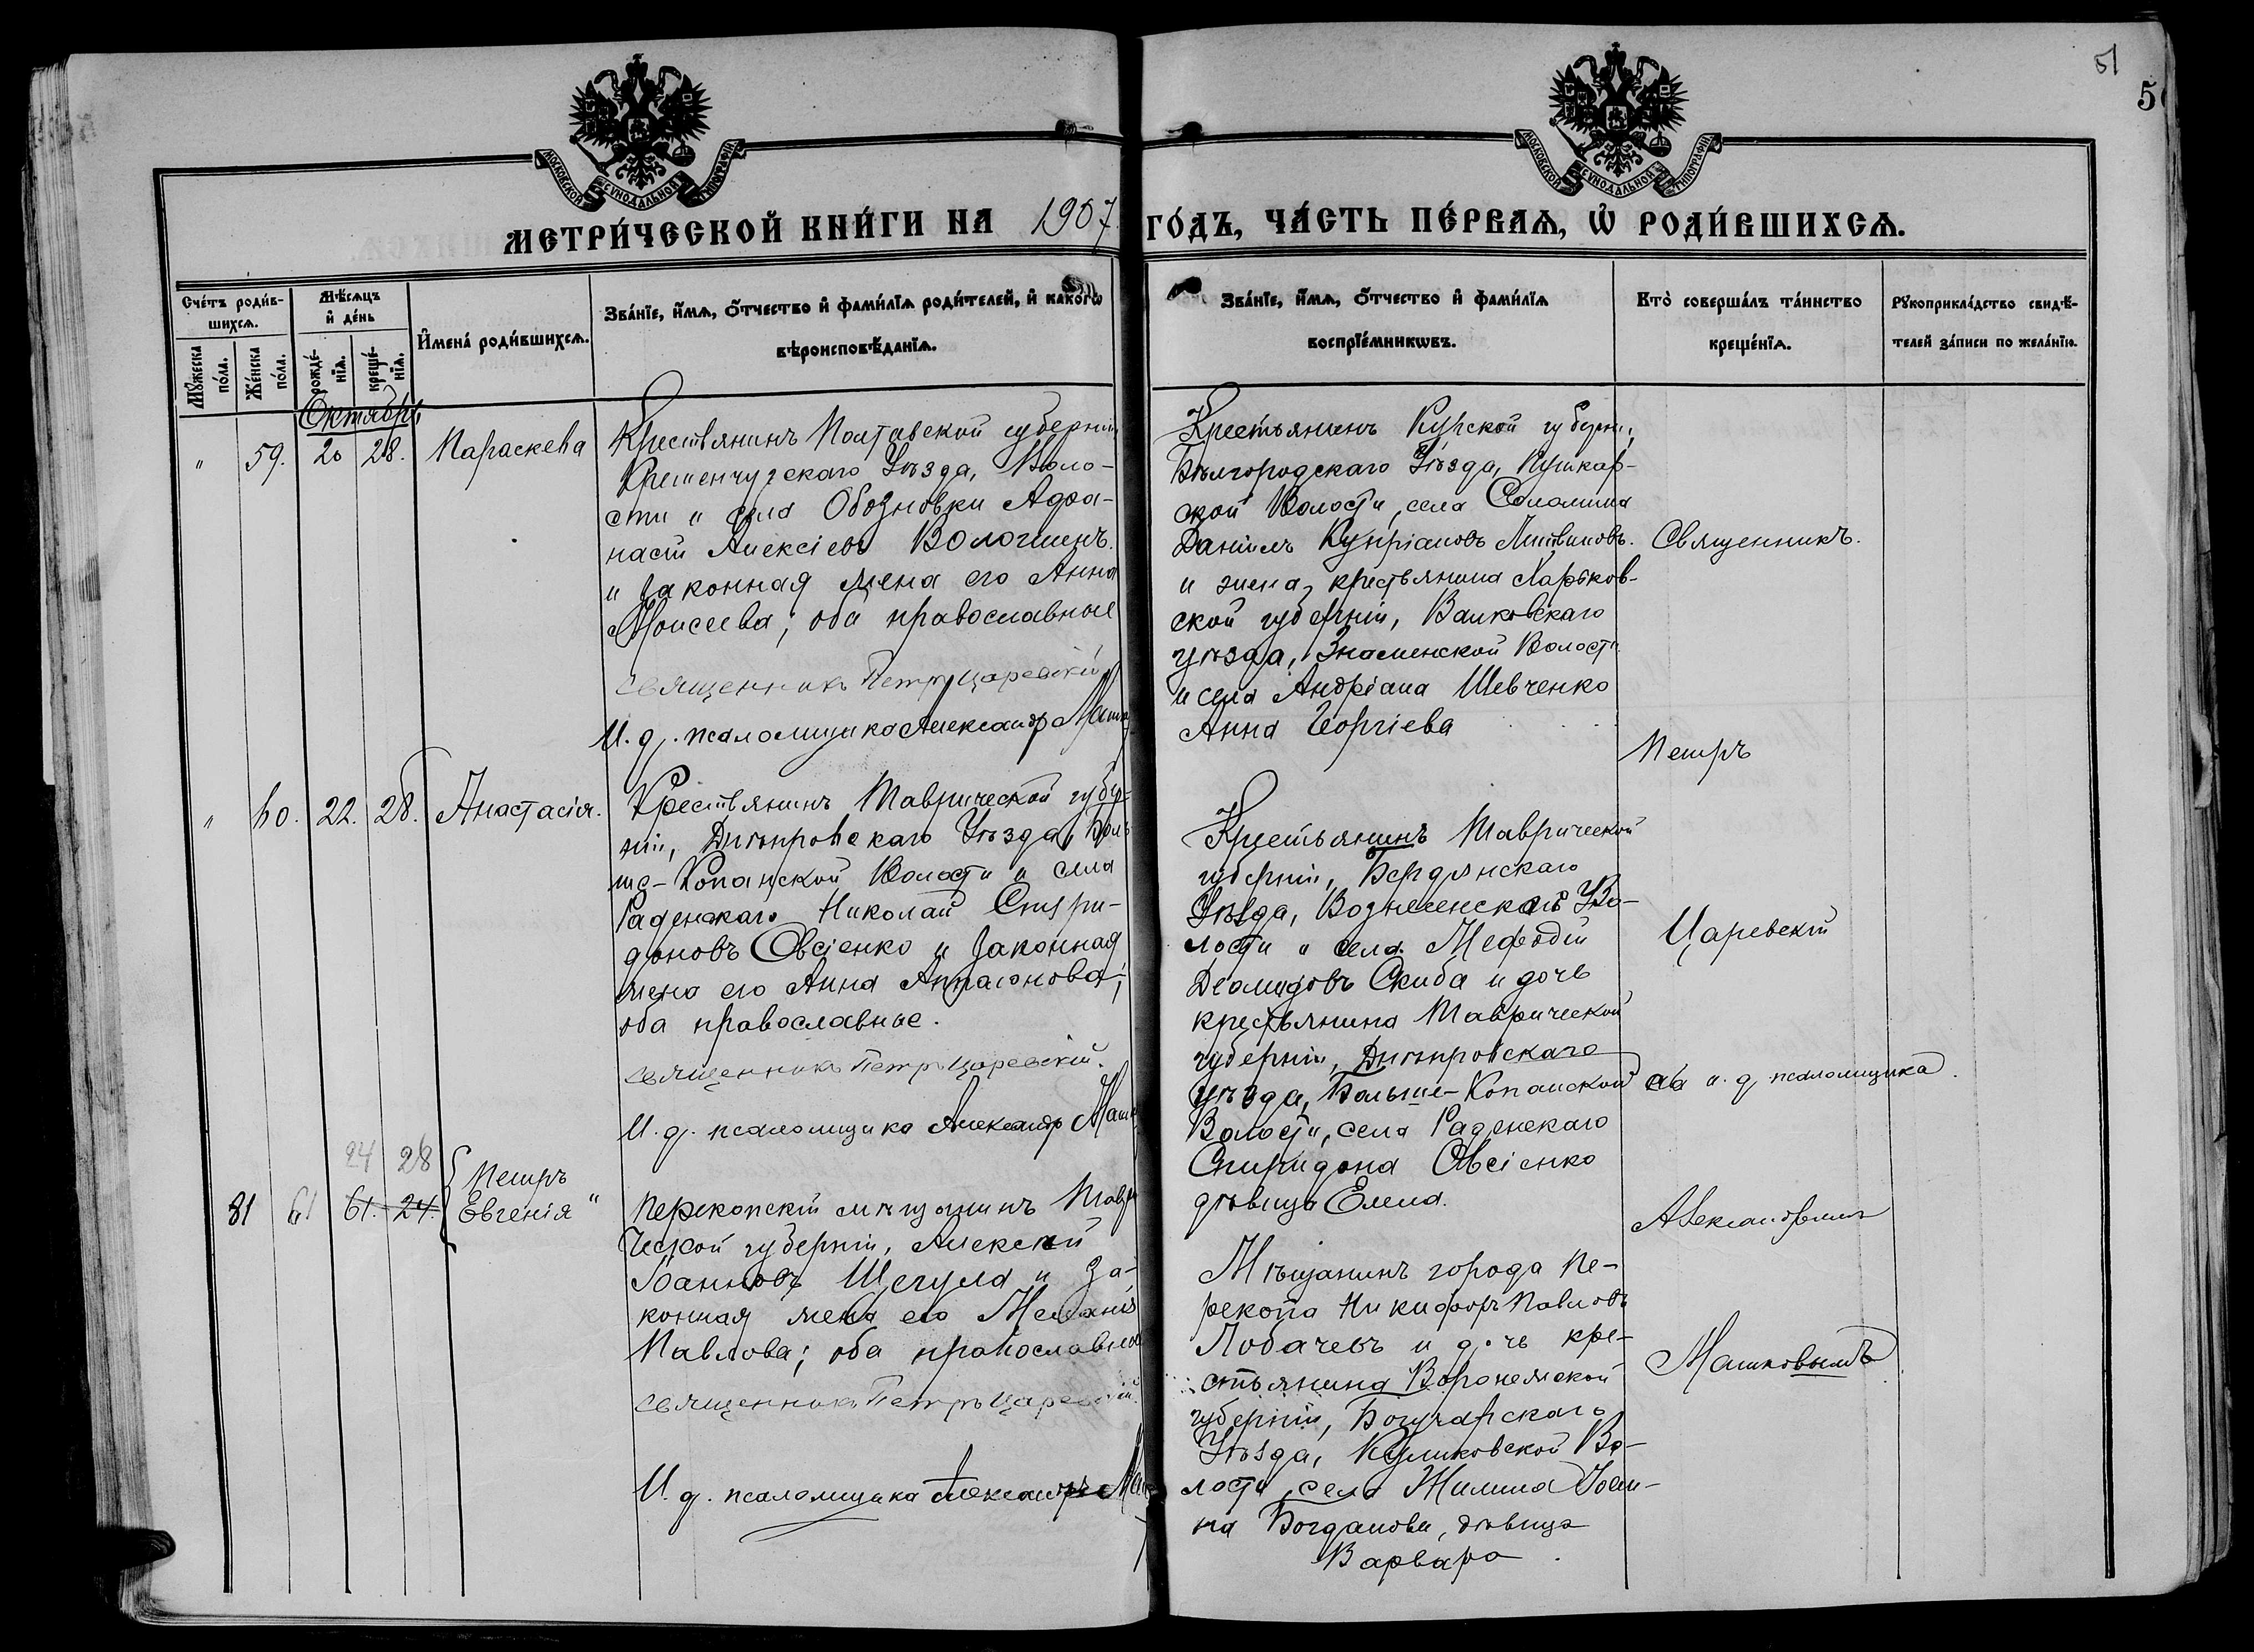 51
5
МОСКОВСКОЙ СѴНОДАЛЬНОЙ ТИПОГРАФІИ
МОСКОВСКОЙ СѴНОДАЛЬНОЙ ТИПОГРАФІИ
МЕТРИ́ЧЕСКОЙ КНИ́ГИ НА 1907 ГО́ДЪ, ЧА́СТЬ ПЕ́РВАѦ, Ѡ҆ РОДИ́ВШИХСѦ.
Сче́тъ роди́в-
шихсѧ.
Мꙋ́жеска по́ла.
Же́нска по́ла.
Мѣ́сѧцъ
и҆ де́нь
рожде́-
нїѧ.
креще́-
нїѧ.
И҆мена̀ роди́вшихсѧ.
Зва́нїе, и҆́мѧ, ѻ҆́тчество и҆ фами́лїѧ роди́телей, и҆ како́гѡ
вѣроисповѣ́данїѧ.
Зва́нїе, и҆́мѧ, ѻ҆́тчество и҆ фами́лїѧ
воспрїе́мникѡвъ.
Кто̀ соверша́лъ та́инство
креще́нїѧ.
Рꙋкоприкла́дство свидѣ́-
телей за́писи по жела́нїю.
Октябрь
" 59. 20 28. Параскева
Крестьянинъ Полтавской губерніи
Кременчугскаго Уѣзда, Воло-
сти и села Обозновки Афа-
насій Алексіевъ
и законная жена его Анна
Моисеева; оба православные
священникъ Петръ Царевскій
И. д. псаломщика Александр
Крестьянинъ Курской губерніи,
Бѣлгородскаго Уѣзда, Пушкар-
ской Волости, села Соломина
Даніилъ Купріановъ Литвиновъ.
и жена крестьянина Харьков-
ской губерніи, Валковскаго
уѣзда, Знаменской Волости
и села Андріана Шевченко
Анна Георгіева
Священникъ.
Петръ
" 60. 22. 28. Анастасія.
Крестьянинъ Таврической губер-
ніи, Днѣпровскаго Уѣзда, Боль
ше-Копанской Волости и села
Раденскаго Николай Спири-
доновъ Овсіенко и законная
жена его Анна
оба православные.
священникъ Петръ Царевскій.
И. д. псаломщика Александр
Крестьянинъ Таврической
губерніи, Бердянскаго
Уѣзда, Вознесенской Во-
лости и села Мефодій
Діамидовъ Скиба и дочь
крестьянина Таврической
губерніи, Днѣпровскаго
уѣзда, Больше-Копанской
Волости, села Раденскаго
Спиридона Овсіенко
дѣвица Елена.
Царевскій
и. д. псаломщика
24 28
81 61 61. 24. Петръ
Евгенія "
Перекопскій мѣщанинъ Таври
ческой губерніи, Алексій
Іоанновъ Шегула и за-
конная жена его Меланія
Павлова; оба православные
священникъ Петръ Царевскій.
И. д. псаломщика Александръ
Мѣщанинъ города Пе-
рекопа Никифоръ Павловъ
Лобачевъ и дочь кре-
стьянина Воронежской
губерніи, Богучарскаго
Уѣзда, Куликовской Во-
лости, села Жилина Іоан-
на Богданова, дѣвица
Варвара.
Александромъ
Машковымъ